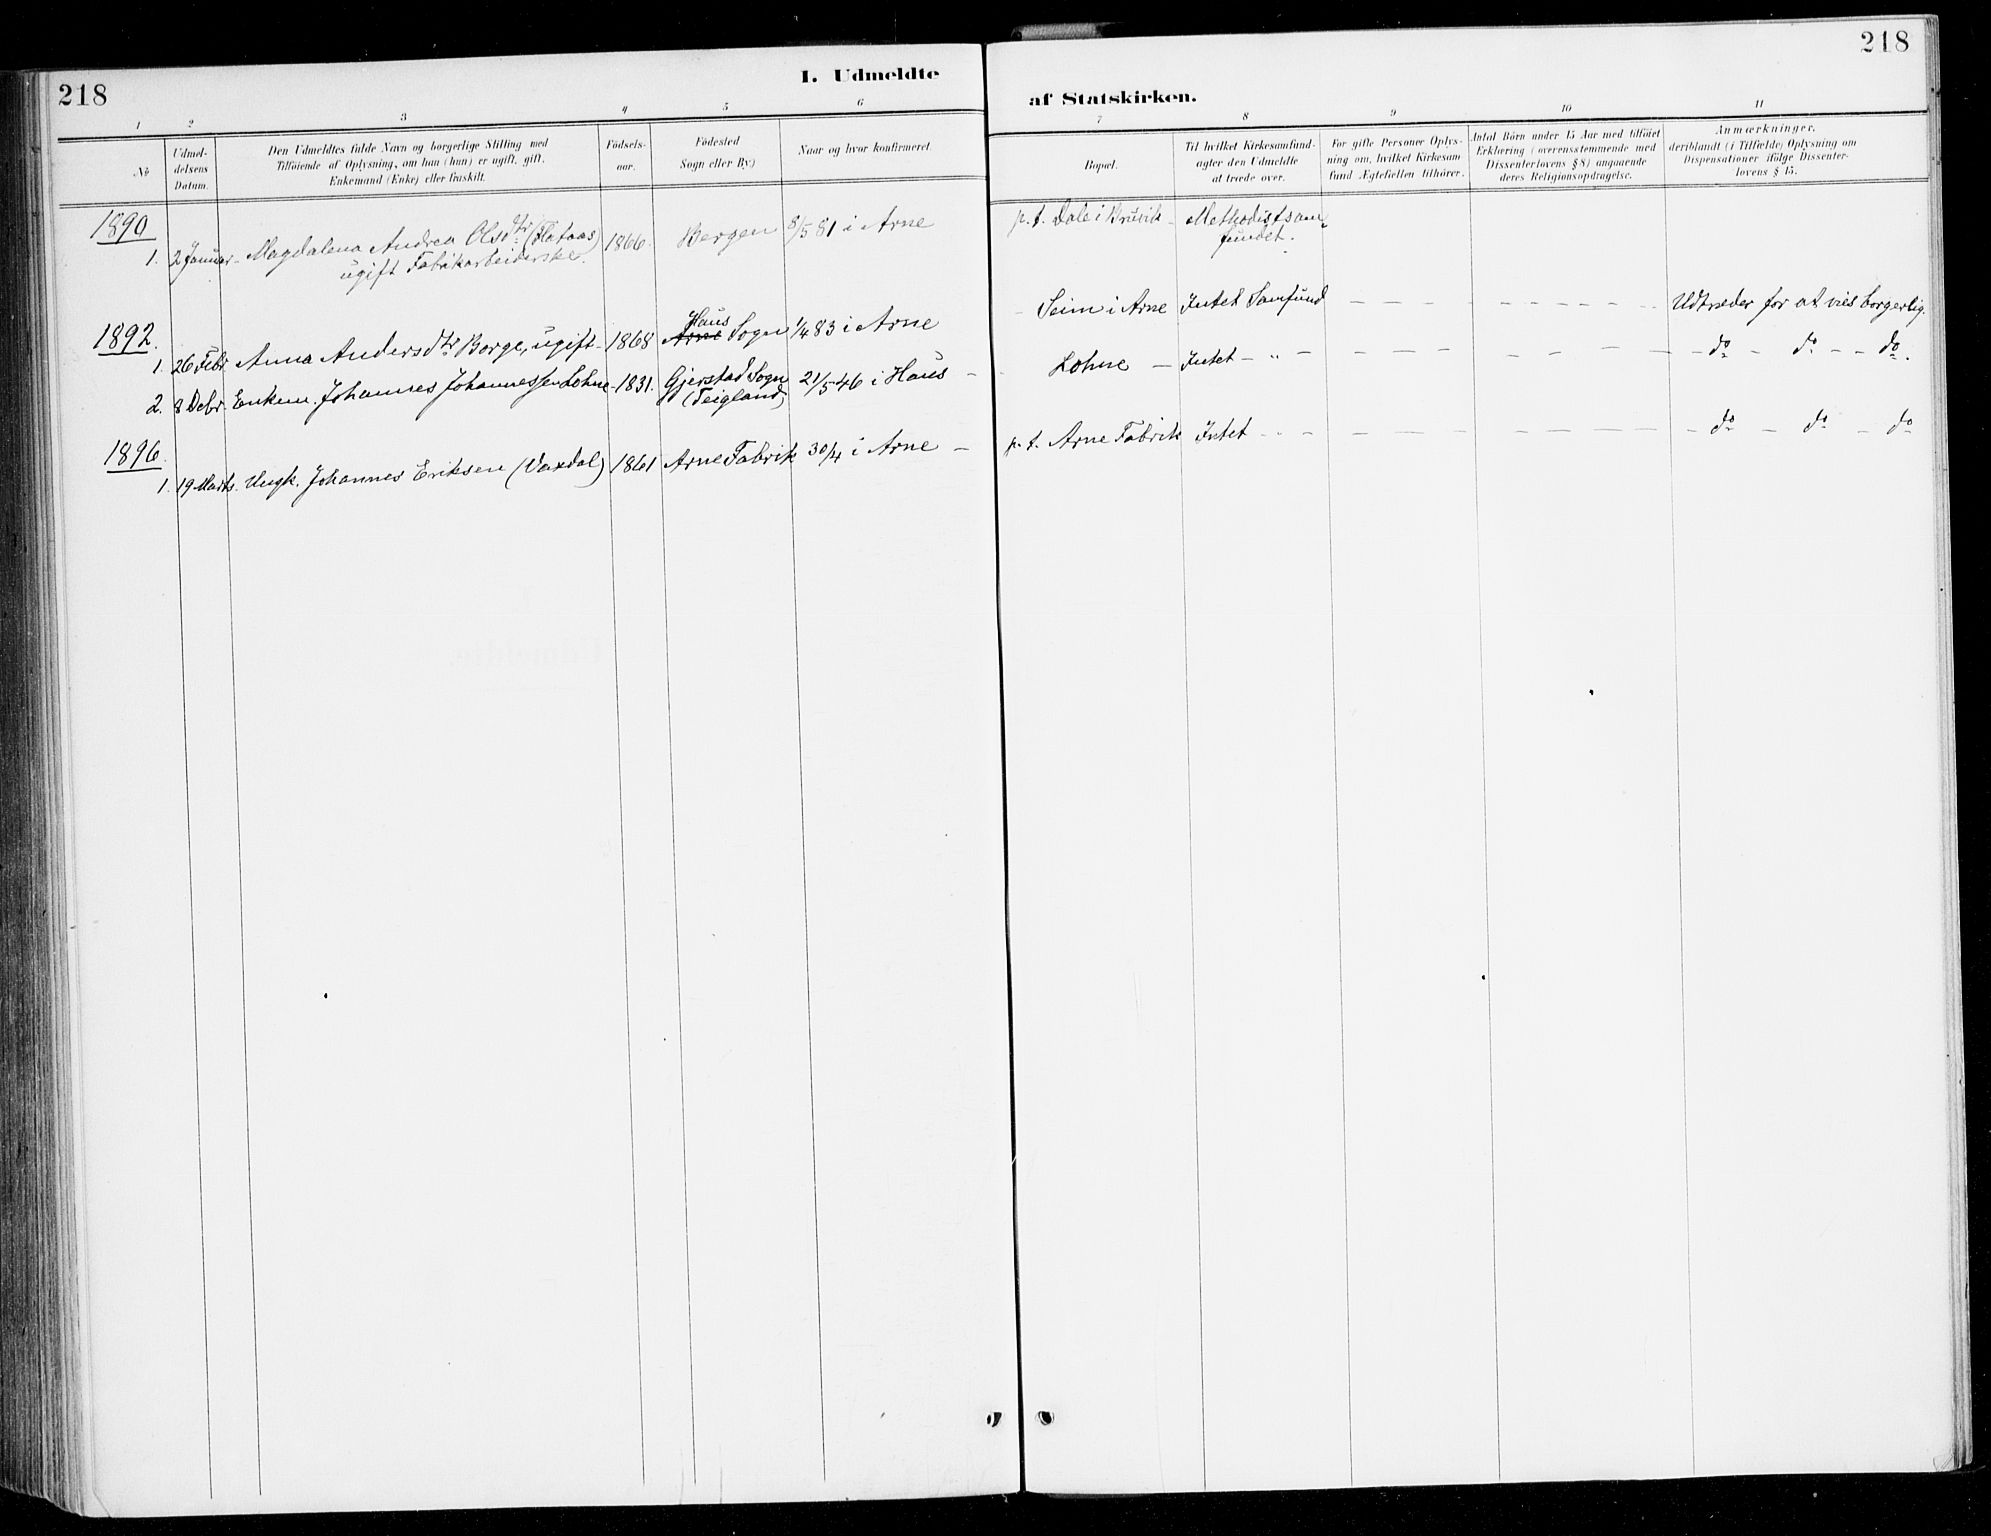 218
I. Udmeldte
af Statskirken.
218
1 2 3 4 5 6 7 8 9 10 11
№
Udmel-
delsens
Datum.
Den Udmeldtes fulde Navn og borgerlige Stilling med
Tilföiende af Oplysning, om han (hun) er ugift, gift,
Enkemand (Enke) eller fraskilt.
Födsels-
aar.
Födested
Sogn eller By:)
Naar og hvor konfirmeret.
Bopæl.
Til hvilket Kirkesamfund-
agter den Udmeldte
at træde over.
For gifte Personer Oplys-
ning om, hvilket Kirkesam
fund Ægtefællen tilhörer.
Antal Börn under 15 Aar med tilföiet
Erklæring (overensstemmende med
Dissenterlovens § 8) angaaende
deres Religionsopdragelse.
Anmærkninger.
deriblandt (i Tilfælde) Oplysning om
Dispensationer ifölge Dissenter-
lovens § 15.
1890
1. 2 Januar - Magdalena Andrea Olsdtr (Flataas) 1866. Bergen 8/5 81 i Arne p. t. Dale i Bruvik - Methodistsam-
ugift Fabrikarbeiderske. fundet.
1892.
1. 26 Febr. Anna Andersdtr Borge, ugift - 1868 Arne Haus Sogn 1/4 83 i Arne - Seim i Arne Intet Samfund - - - Udtræder for at vies borgerlig.
2. 8 Debr. Enkem. Johannes Johannessen Lohne - 1831. Gjerstad Sogn 21/5 46 i Haus - Lohne - Intet - " - - - do - do - - do.
(Teigland)
1896.
1. 19 Marts. Ungk. Johannes Eriksen (Vaxdal) 1861 Arne Fabrik 30/4 i Arne - p. t. Arne Fabrik Intet - - - do - do - do